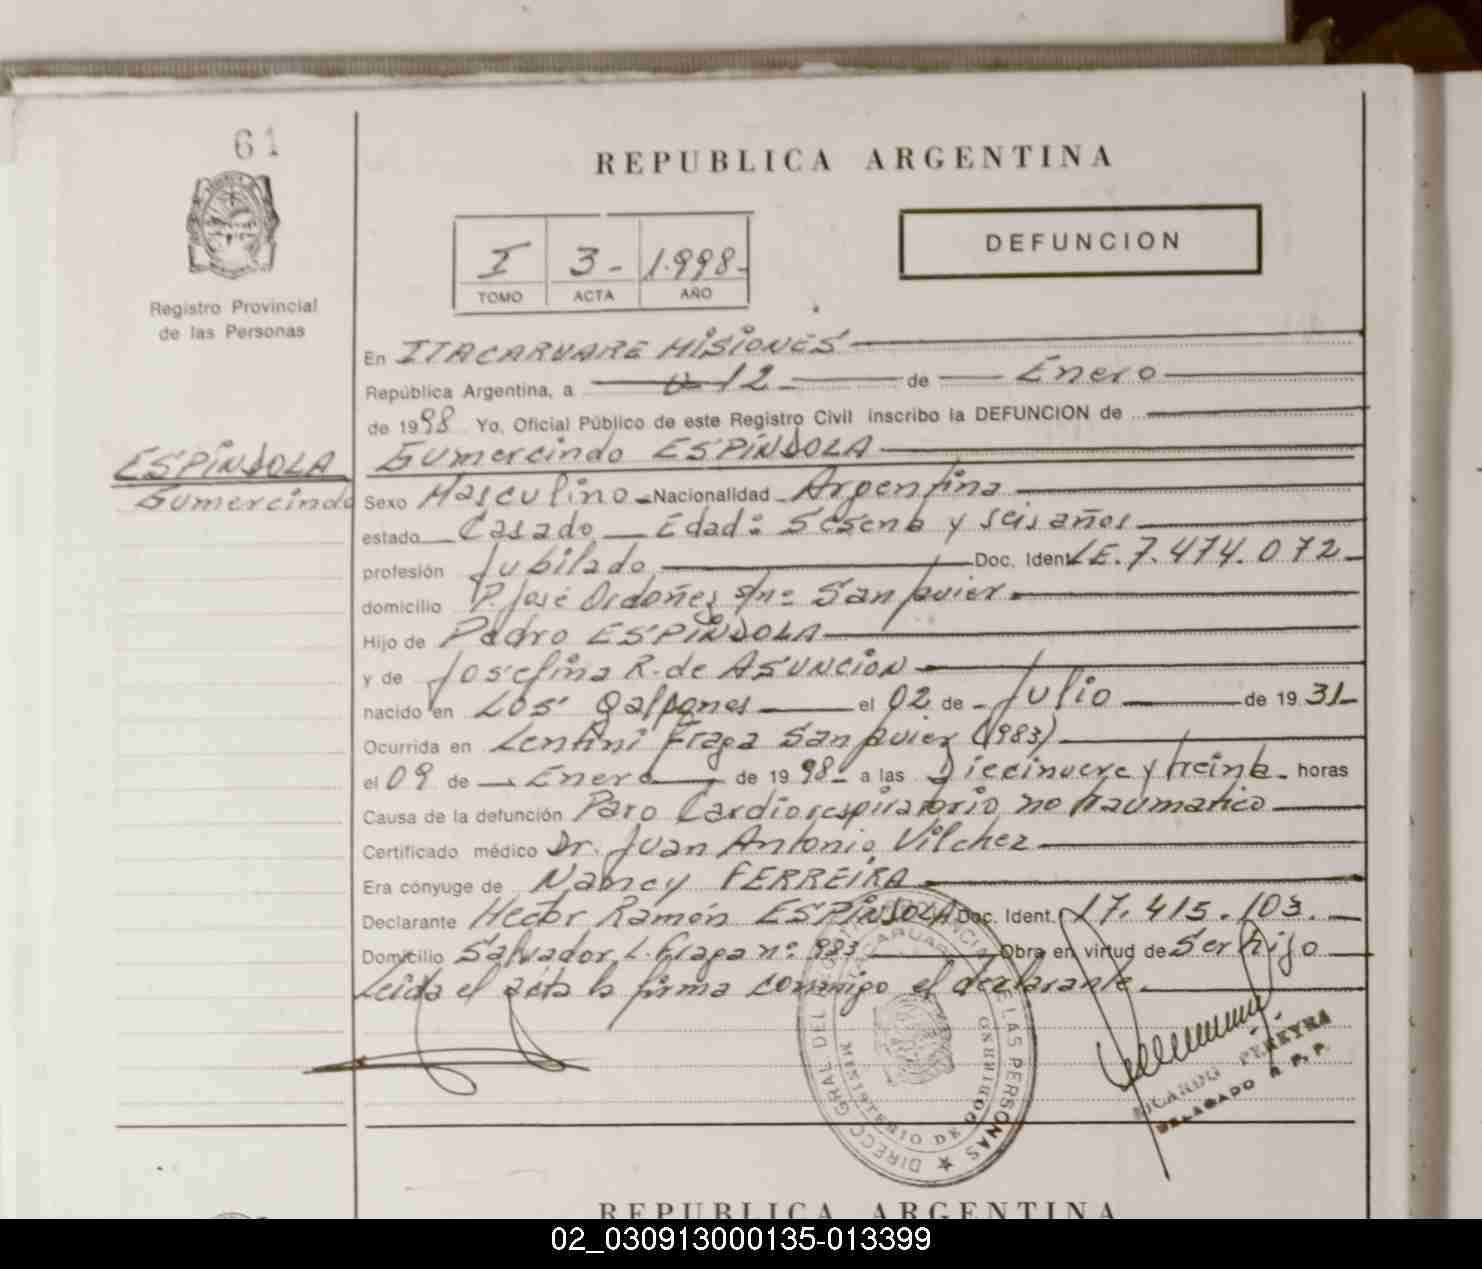 61
REPUBLICA ARGENTINA
DEFUNCION
I 3- 1.998-
TOMO ACTA AÑO
Registro Provincial
de las Personas
En ITACARUARE MISIONES
República Argentina, a 12 de Enero
de 1998 Yo, Oficial Público de este Registro Civil inscribo la DEFUNCION de
ESPÍNDOLA
Gumercindo
Gumercindo ESPÍNDOLA
Sexo Masculino - Nacionalidad Argentina
estado Casado Edad: Sesenta y seis años
profesión Jubilado Doc. Ident. L.E. 7.474.072
domicilio P. José Ordoñez s/nº San Javier
Hijo de Pedro ESPÍNDOLA
y de Josefina R. de ASUNCIÓN
nacido en Los Galpones el 02 de Julio de 1931
Ocurrida en Lentini Fraga San Javier (983)
el 09 de Enero de 1998 a las Diecinueve y treinta horas
Causa de la defunción Paro Cardiorespiratorio no traumatico
Certificado médico Dr. Juan Antonio Vilchez
Era cónyuge de Nancy FERREIRA
Declarante Hector Ramón ESPÍNDOLA Doc. Ident. 17.415.103
Domicilio Salvador L. Fraga nº 983 Obra en virtud de Ser hijo
Leida el acta la firma conmigo el declarante
DIRECC GRAL DEL DE LAS PERSONAS
ITACARUARE
MINISTERIO DE GOBIERNO
RICARDO PEREYRA
DELEGADO R. P. P.
REPUBLICA ARGENTINA
02_030913000135-013399